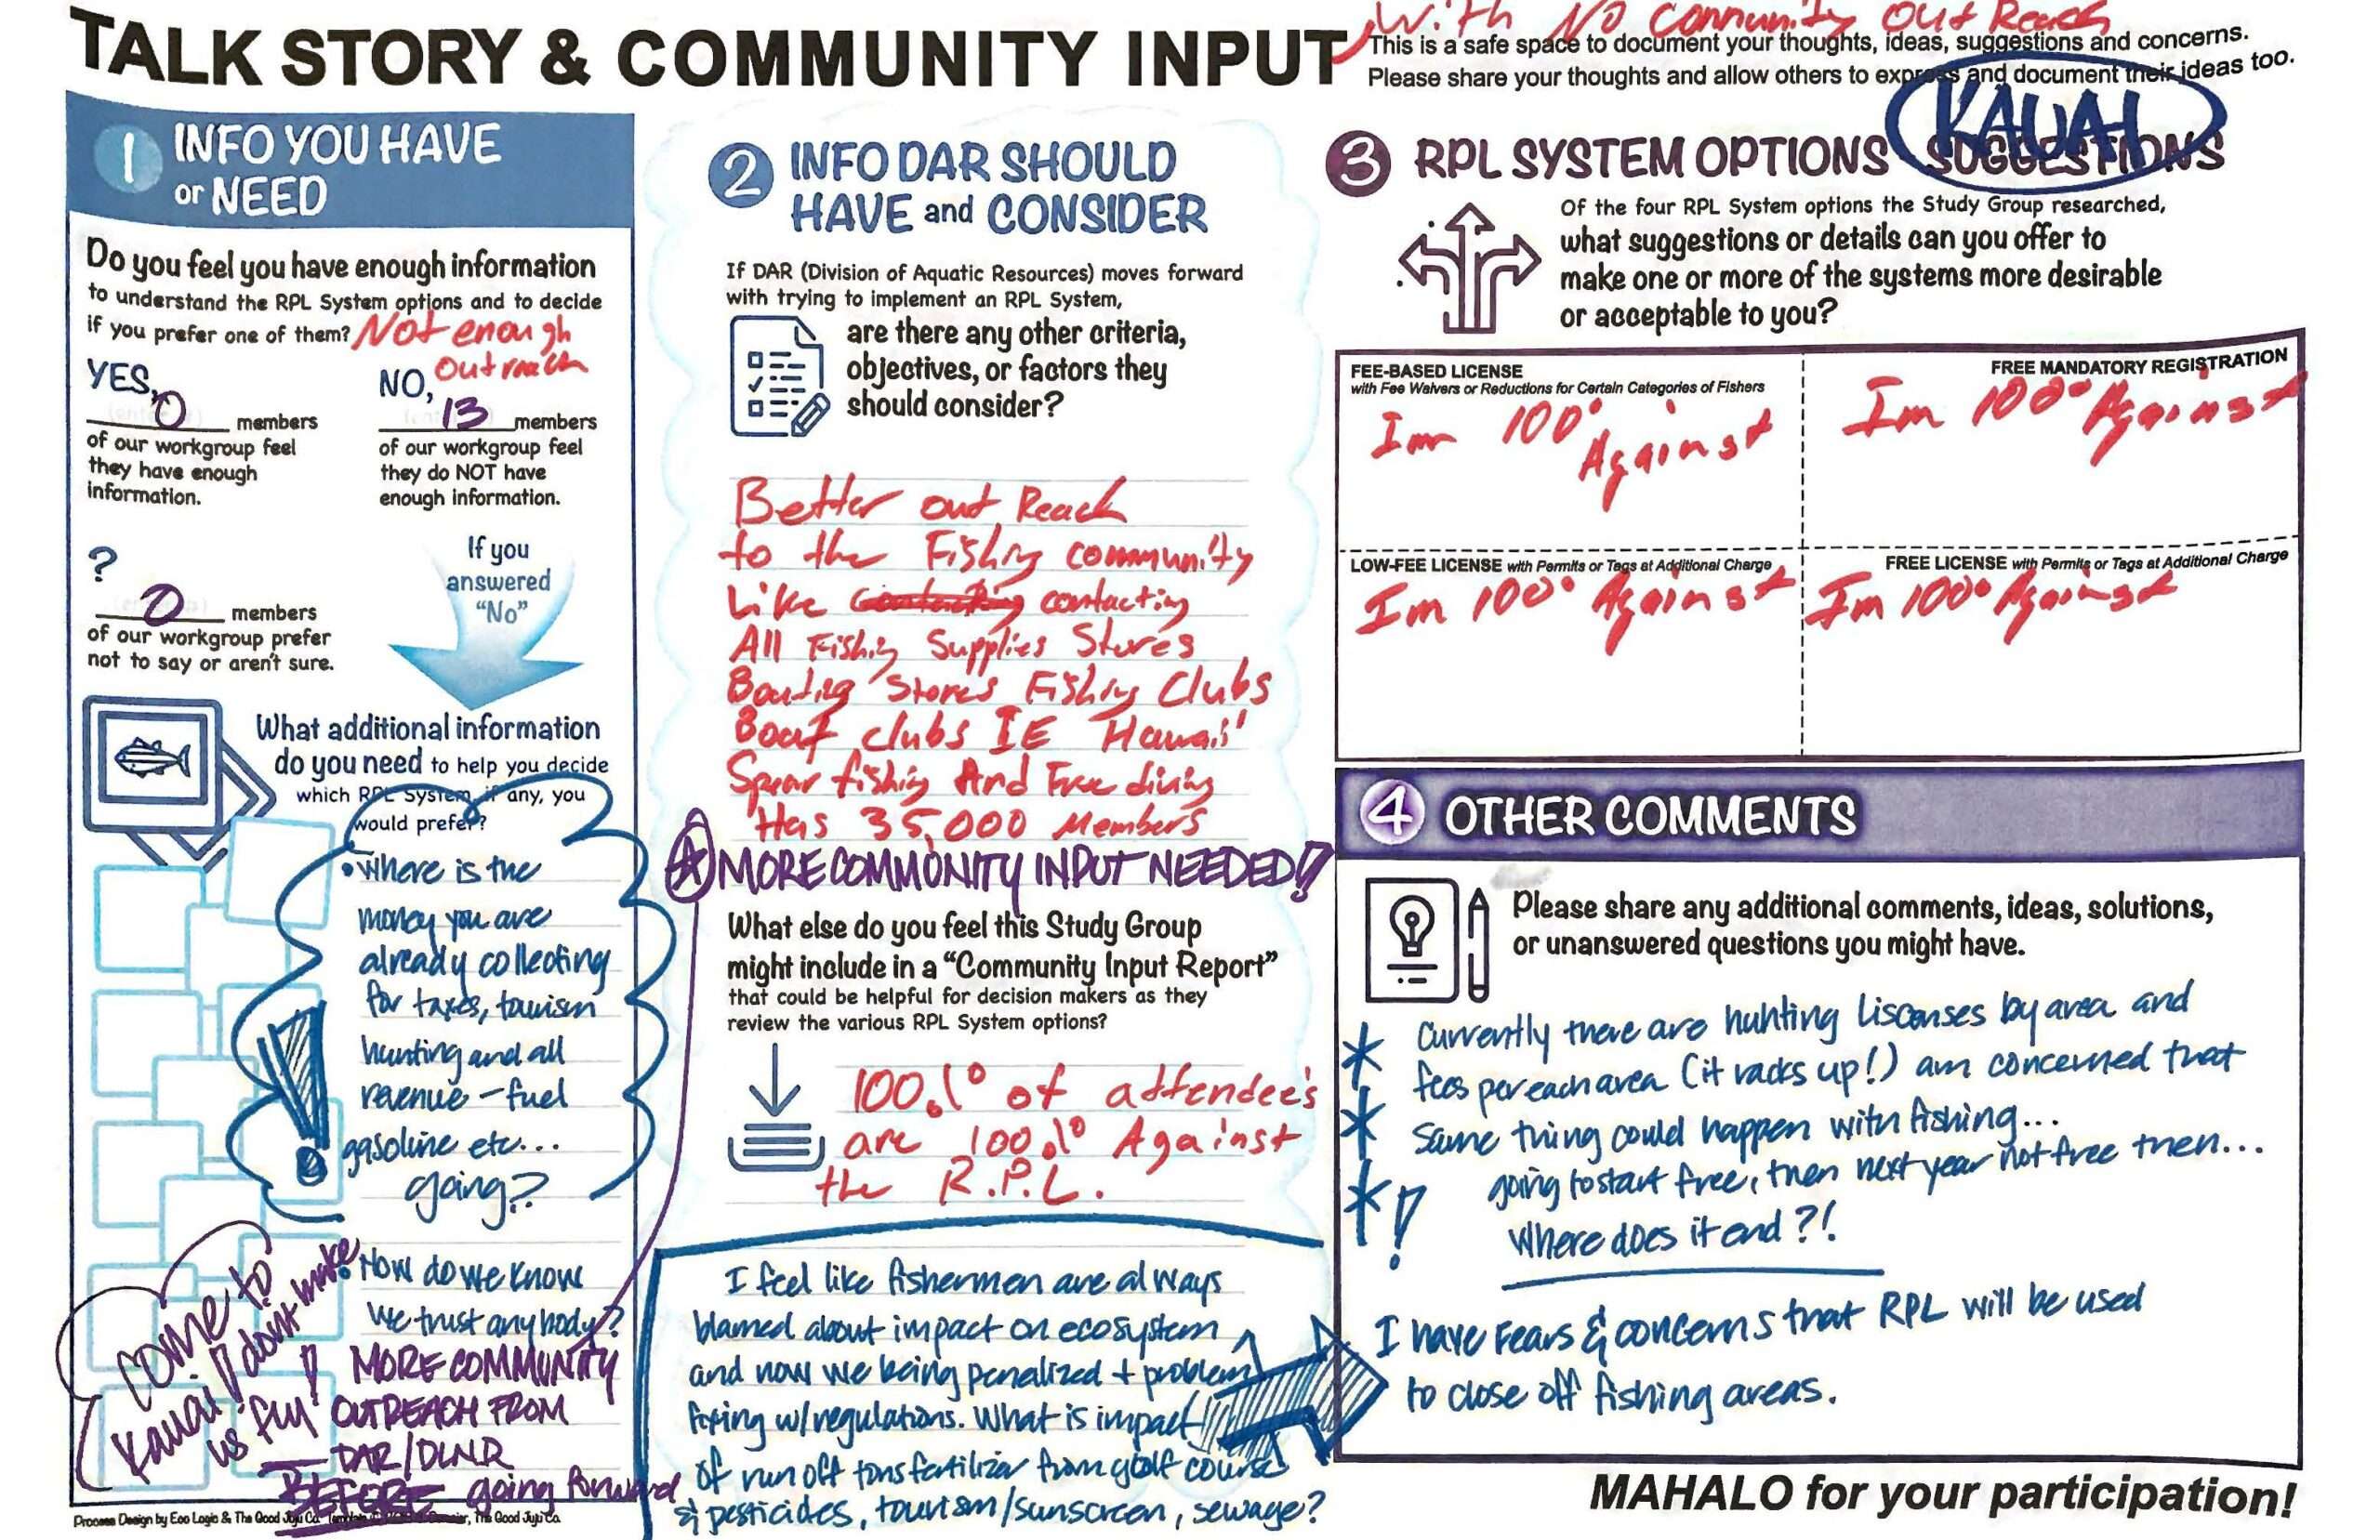 TALK STORY & COMMUNITY INPUT
With No Community Out Reach
This is a safe space to document your thoughts, ideas, suggestions and concerns.
Please share your thoughts and allow others to express and document their ideas too.
KAUAI
1 INFO YOU HAVE
or NEED
Do you feel you have enough information
to understand the RPL System options and to decide
if you prefer one of them? Not enough
Outreach
YES,
0 members
of our workgroup feel
they have enough
information.
NO,
13 members
of our workgroup feel
they do NOT have
enough information.
?
0 members
of our workgroup prefer
not to say or aren't sure.
If you
answered
"No"
What additional information
do you need to help you decide
which RPL System, if any, you
would prefer?
• Where is the
money you are
already collecting
for taxes, tourism
hunting and all
revenue – fuel
gasoline etc...
going?
• How do we know
we trust anybody?
MORE COMMUNITY
OUTREACH FROM
DAR/DLNR
BEFORE going forward
come to
Kauai!! don't make
us fly!!
Process Design by Eco Logic & The Good Juju Co.
The Good Juju Co.
2 INFO DAR SHOULD
HAVE and CONSIDER
If DAR (Division of Aquatic Resources) moves forward
with trying to implement an RPL System,
are there any other criteria,
objectives, or factors they
should consider?
Better out Reach
to the Fishing community
Like contacting
All Fishing Supplies Stores
Boating Stores Fishing Clubs
Boat clubs IE Hawaii
Spear fishing And Free diving
Has 35,000 Members
MORE COMMUNITY INPUT NEEDED!!
What else do you feel this Study Group
might include in a "Community Input Report"
that could be helpful for decision makers as they
review the various RPL System options?
100.1° of attendee's
are 100.1° Against
the R.P.L.
I feel like fishermen are always
blamed about impact on ecosystem
and now we being penalized + problem
fixing w/regulations. What is impact
of run off tons fertilizer from golf course
& pesticides, tourism/sunscreen, sewage?
3 RPL SYSTEM OPTIONS SUGGESTIONS
Of the four RPL System options the Study Group researched,
what suggestions or details can you offer to
make one or more of the systems more desirable
or acceptable to you?
FEE-BASED LICENSE
with Fee Waivers or Reductions for Certain Categories of Fishers
Im 100° Against
FREE MANDATORY REGISTRATION
Im 100° Against
LOW-FEE LICENSE with Permits or Tags at Additional Charge
Im 100° Against
FREE LICENSE with Permits or Tags at Additional Charge
Im 100° Against
4 OTHER COMMENTS
Please share any additional comments, ideas, solutions,
or unanswered questions you might have.
* Currently there are huhting Liscenses by area and
fees per each area (it racks up!) am concerned that
* Same thing could happen with fishing...
*! going to start free, then next year not free then...
Where does it end?!
I have Fears & concerns that RPL will be used
to close off fishing areas.
MAHALO for your participation!